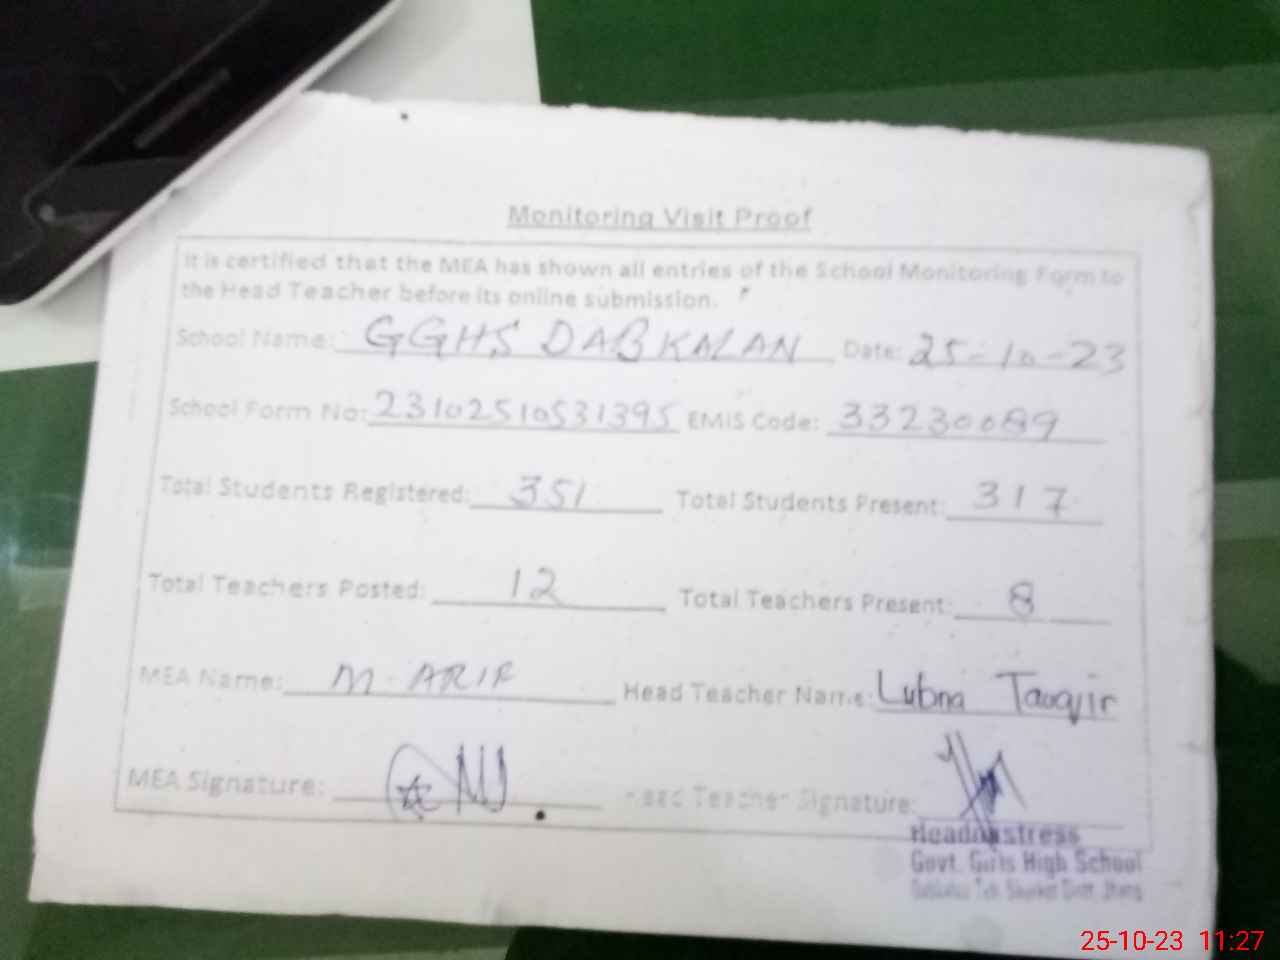 Monitoring Visit Proof
It is certified that the MEA has shown all entries of the School Monitoring Form to
the Head Teacher before its online submission.
School Name: GGHS DABKALAN Date: 25-10-23
School Form No: 23102510531395 EMIS Code: 33230089
Total Students Registered: 351 Total Students Present: 317
Total Teachers Posted: 12 Total Teachers Present: 8
MEA Name: M. ARIF Head Teacher Name: Lubna
MEA Signature: Head Teacher Signature:
Headmistress
Govt. Girls High School
25-10-23 11:27